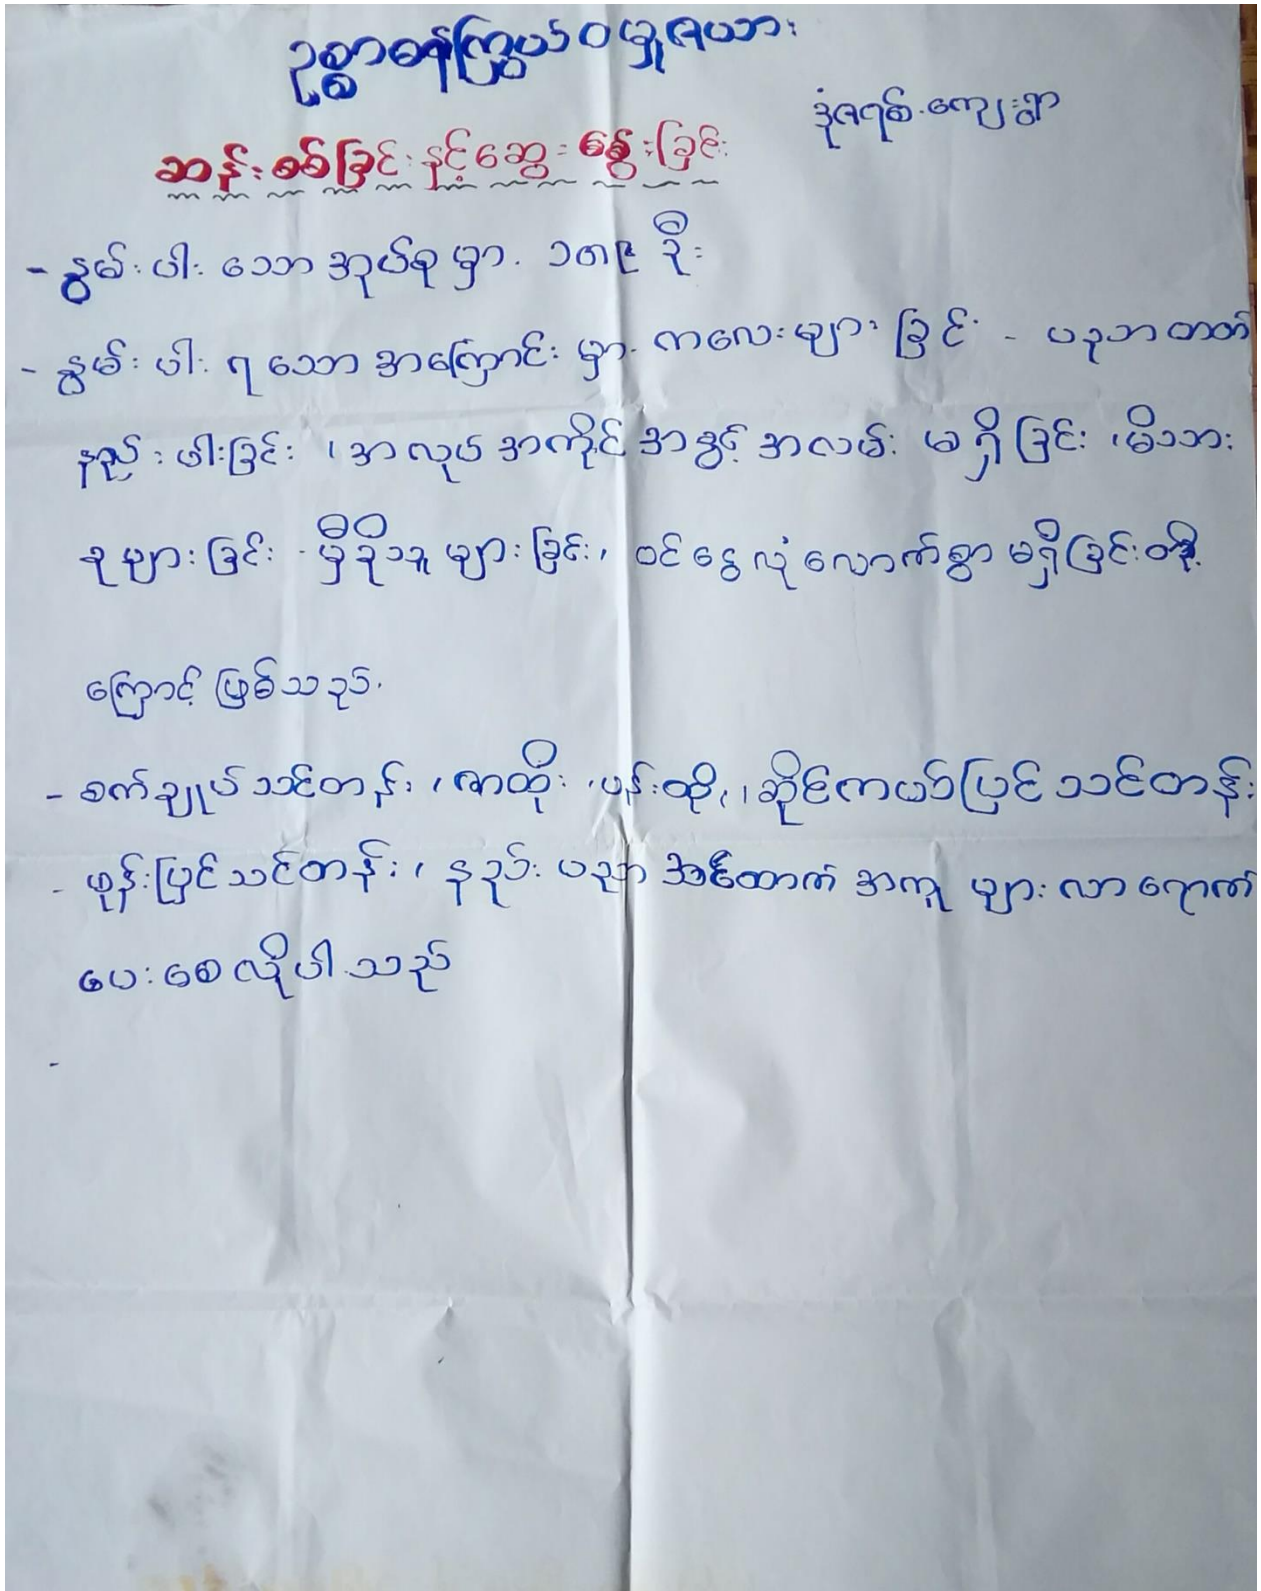 ဥစ္စာဓနကြွယ်ဝမှုဇယား
ဒုံဇရစ်ကျေးရွာ
ဆန်းစစ်ခြင်းနှင့်ဆွေးနွေးခြင်း
- နွမ်းပါးသောအုပ်စုမှာ ၁၈၉ ဦး
- နွမ်းပါးရသောအကြောင်းမှာ ကလေးများခြင်း - ပညာတတ်
နည်းပါးခြင်း ၊ အလုပ်အကိုင်အခွင့်အလမ်းမရှိခြင်း ၊ မိသား
စုများခြင်း - မှီခိုသူများခြင်း ၊ ဝင်ငွေလုံလောက်စွာမရှိခြင်းတို့
ကြောင့်ဖြစ်သည်
- စက်ချုပ်သင်တန်း ၊ ဇာထိုး ၊ ပန်းထိုး ၊ ဆိုင်ကယ်ပြင်သင်တန်း
- ဖုန်းပြင်သင်တန်း ၊ နည်းပညာအထောက်အကူများလာရောက်
ပေးစေလိုပါသည်
-